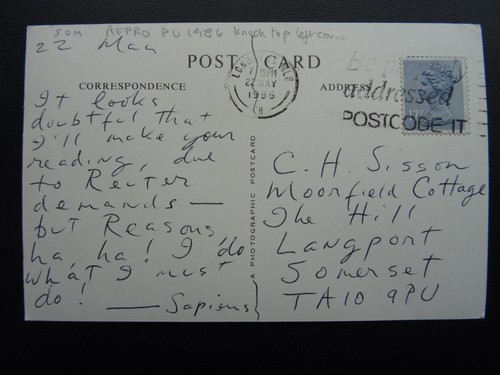 SOM REPRO PU 1986 knock top left corner
22 May
POST CARD
CORRESPONDENCE
ADDRESS
LONDON
PM
22 MAY
1986
H
Be
addressed
POSTCODE IT
It looks
doubtful that
I'll make your
reading, due
to Reuter
demands —
but Reasons,
ha, ha! I do
what I must
do!
— Sapiens
A PHOTOGRAPHIC POSTCARD
C. H. Sisson
Moorfield Cottage
The Hill
Langport
Somerset
TA10 9PU